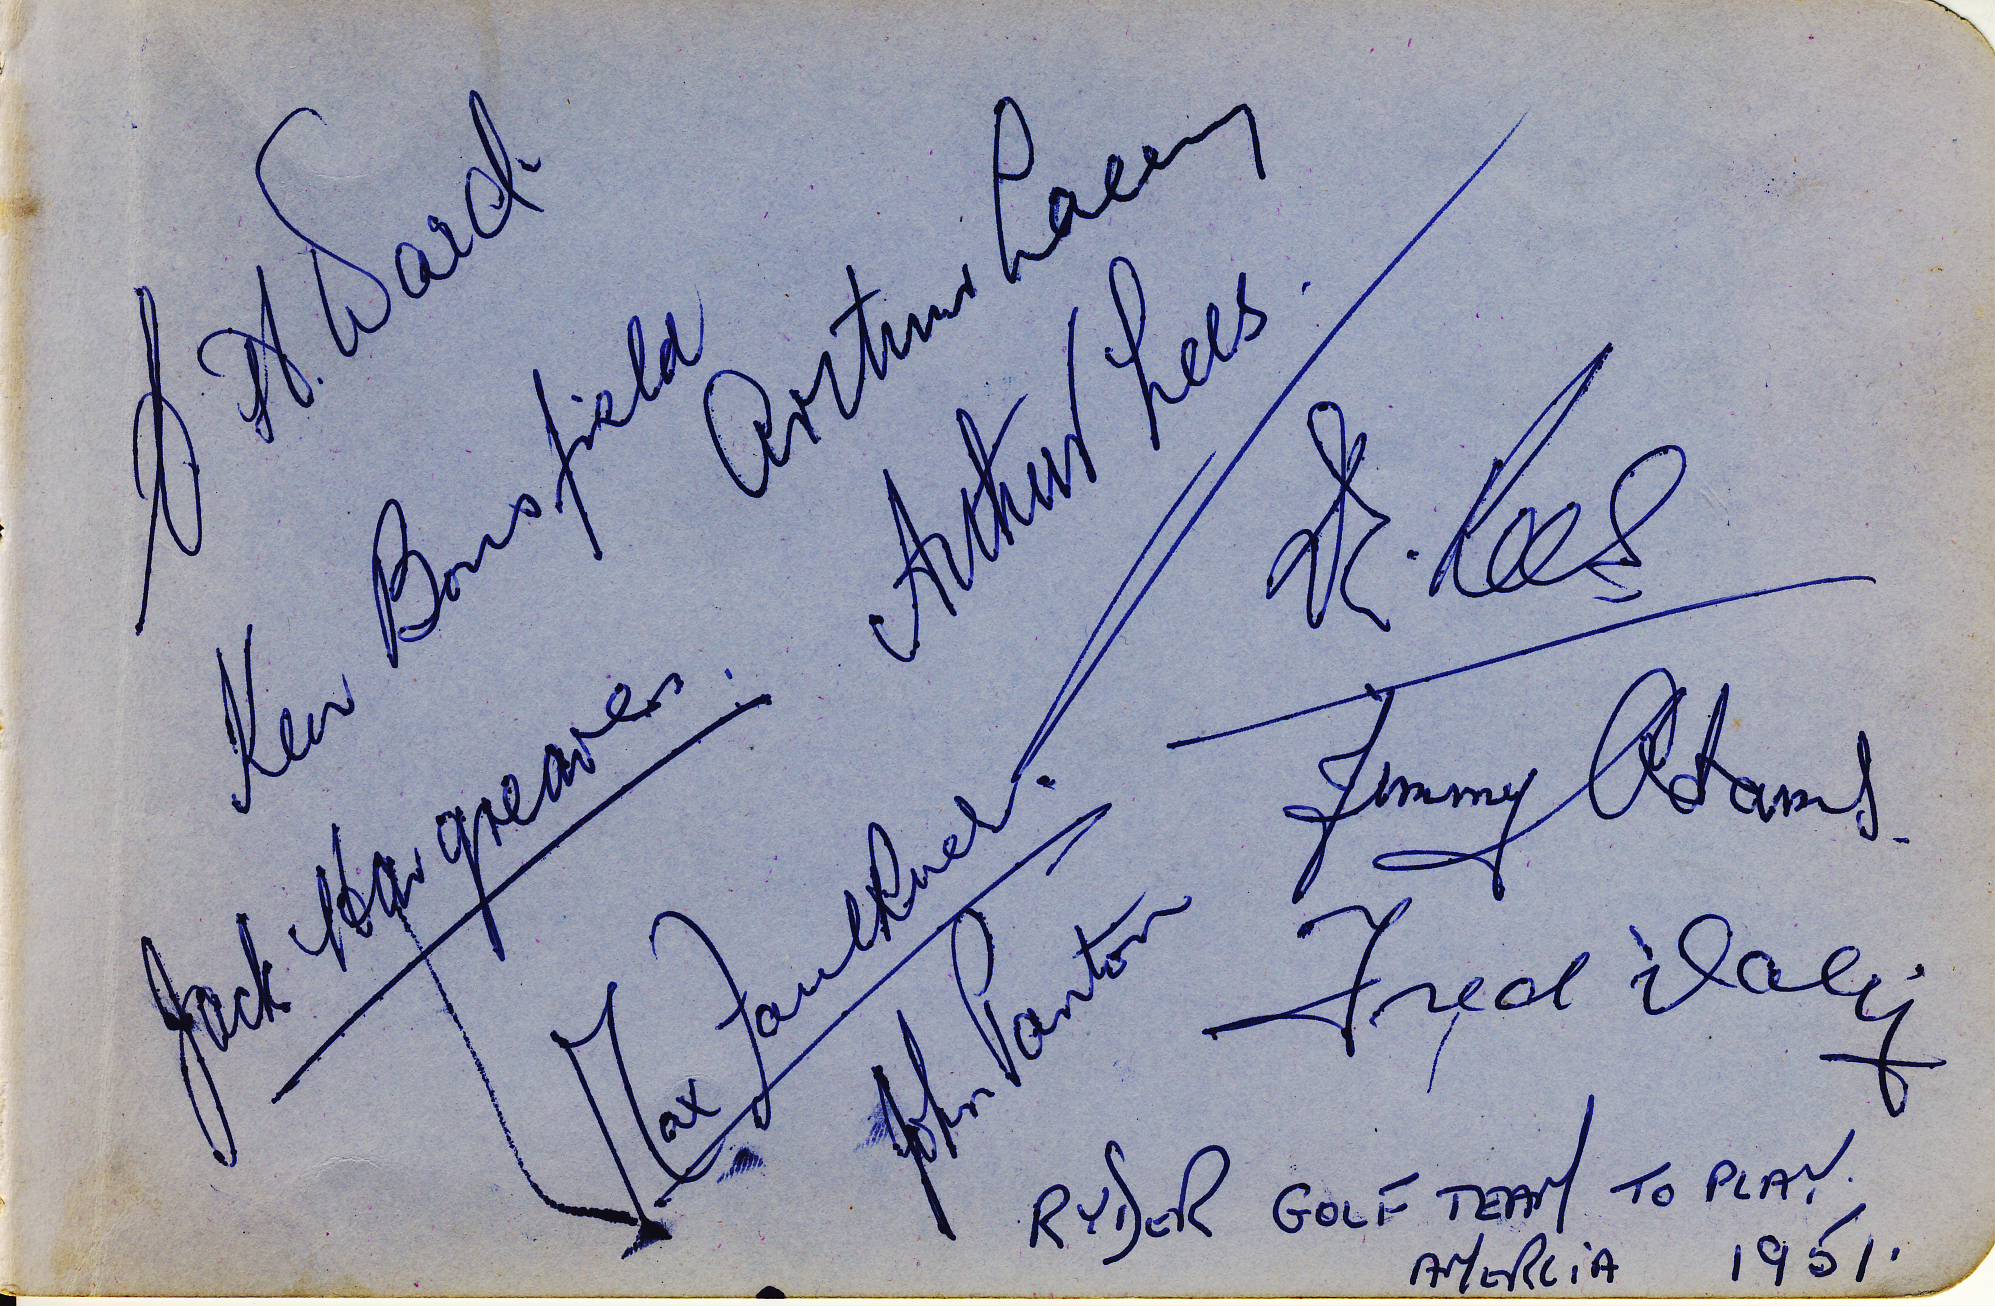 C H. Ward
Ken Bousfield
Arthur Lacey
Arthur Lees.
D. Rees
Jack Hargreaves.
Max Faulkner.
John Panton
Jimmy Adams.
Fred Daly
RYDER GOLF TEAM TO PLAY.
AMERCIA 1951.